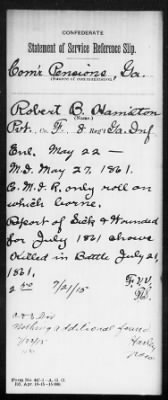 CONFEDERATE
Statement of Service Reference Slip.
Com'r Pensions, Ga.
(Source of communication.)
Robert B. Hamilton
(Name.)
Pvt., Co. F, 8 Reg't Ga. Inf.
Enl. May 22 —
M.I. May 27, 1861.
C.M.R. only roll on
which borne.
Report of Sick & Wounded
for July 1861 shows
Killed in Battle July 21,
1861.
7/21/15
Nothing additional found
Form No. 467-1—A. G. O.